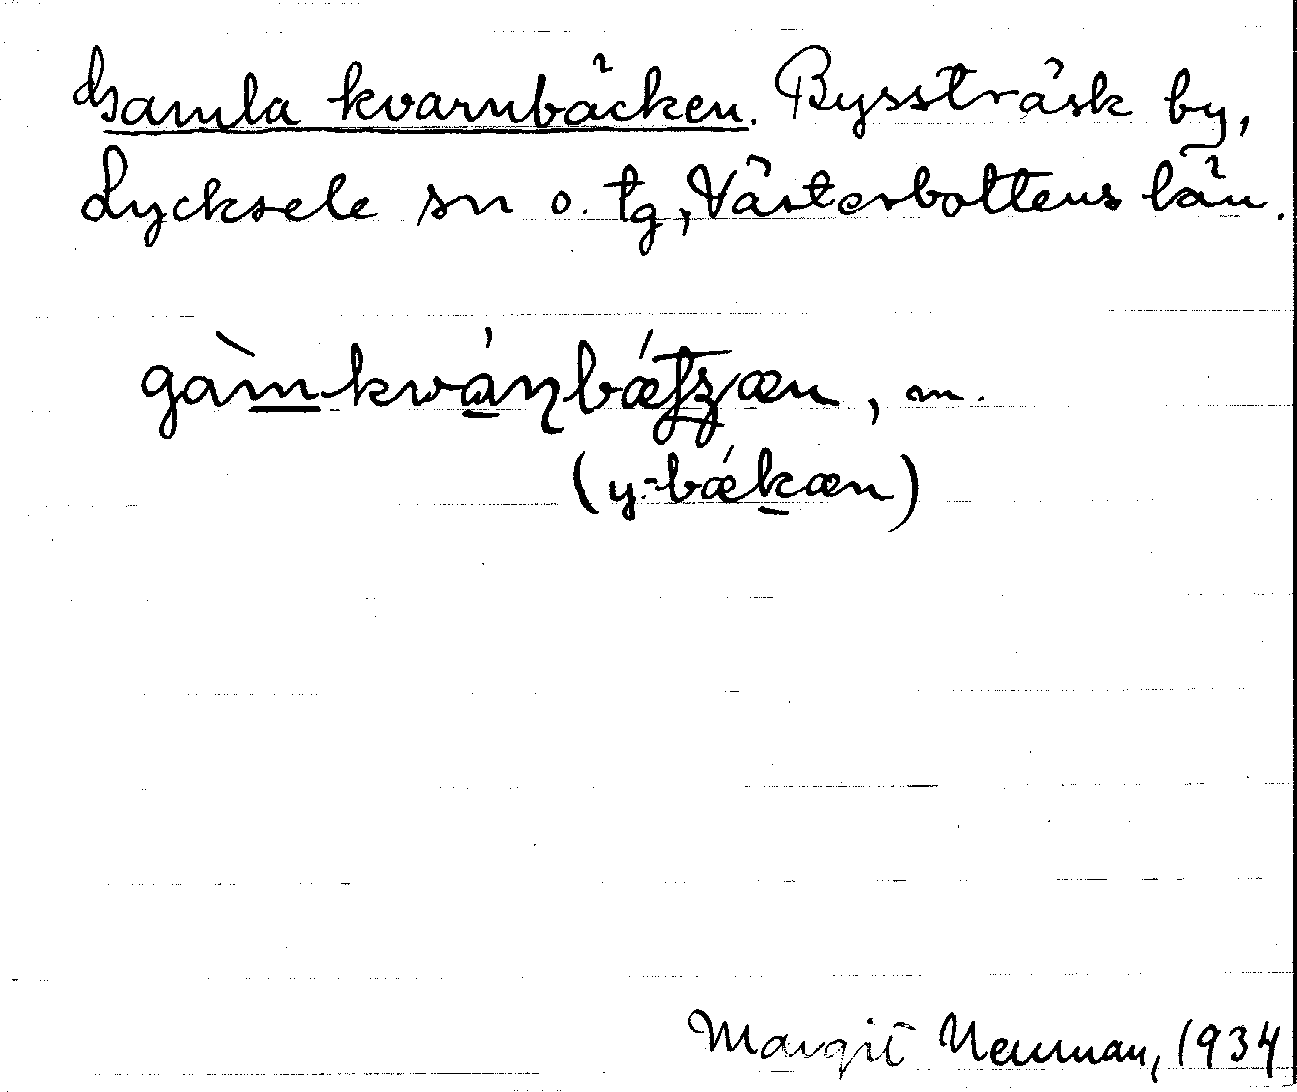 Gamla kvarnbäcken. Byssträsk by,
Lycksele sn o. tg, Västerbottens län.
gàmkwáɳbǽʈʂæn, m.
(y.-bǽkæn)
Margit Neuman, 1934